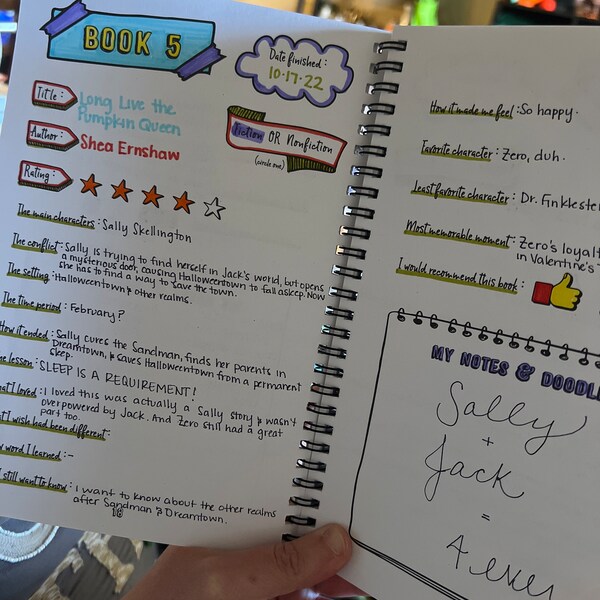 BOOK 5
Date finished:
10.17.22
Title: Long Live the
Pumpkin Queen
Author: Shea Ernshaw
Fiction OR Nonfiction
(circle one)
Rating:
The main characters: Sally Skellington
The conflict: Sally is trying to find herself in Jack's world, but opens
a mysterious door, causing Halloweentown to fall asleep. Now
she has to find a way to save the town.
The setting: Halloweentown & other realms.
The time period: February?
How it ended: Sally cures the Sandman, finds her parents in
Dreamtown, & saves Halloweentown from a permanent
sleep.
he lesson: SLEEP IS A REQUIREMENT!
hat I loved: I loved this was actually a Sally story & wasn't
overpowered by Jack. And Zero still had a great
part too.
at I wish had been different: -
word I learned: -
I still want to know: I want to know about the other realms
after Sandman & Dreamtown.
18
How it made me feel: So happy.
Favorite character: Zero, duh.
Least favorite character: Dr. Finkleste
Most memorable moment: Zero's loyalt
in Valentine's
I would recommend this book:
MY NOTES & DOODLE
Sally
+
Jack
=